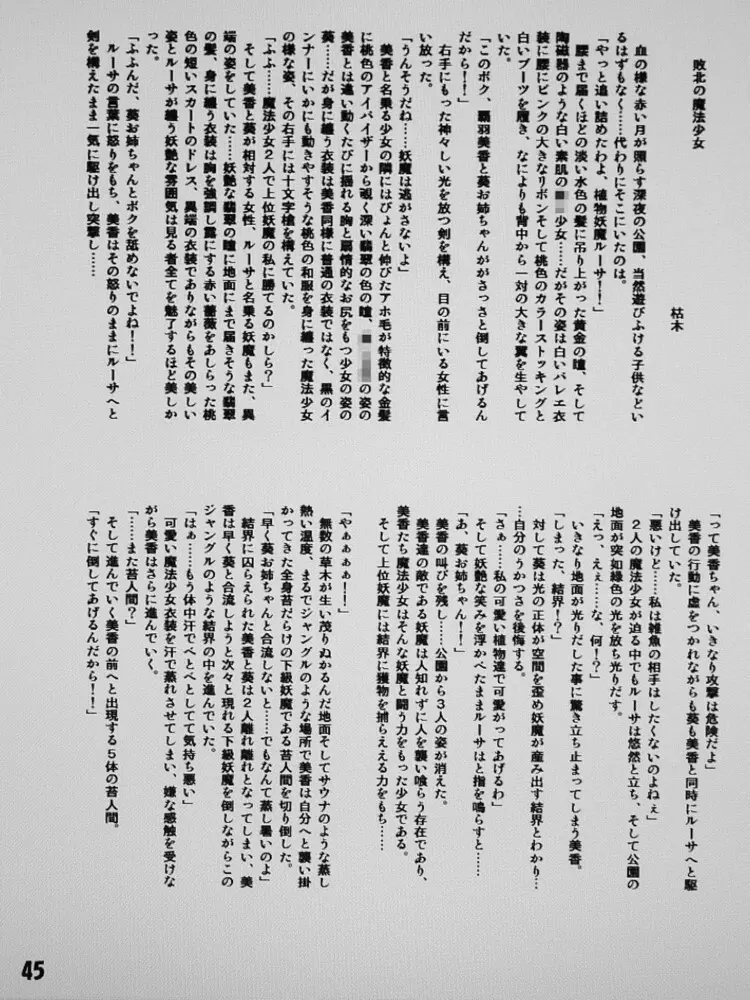 敗北の魔法少女
枯木
血の様な赤い月が照らす深夜の公園、当然遊びふける子供などい
るはずもなく……代わりにそこにいたのは。
「やっと追い詰めたわよ、植物妖魔ルーサ！！」
腰まで届くほどの淡い水色の髪に吊り上がった黄金の瞳、そして
陶磁器のような白い素肌の 少女……だがその姿は白いバレエ衣
装に腰にピンクの大きなリボンそして桃色のカラーストッキングと
白いブーツを履き、なによりも背中から一対の大きな翼を生やして
いた。
「このボク、覇羽美香と葵お姉ちゃんががさっさと倒してあげるん
だから！！」
右手にもった神々しい光を放つ剣を構え、目の前にいる女性に言
い放った。
「うんそうだね……妖魔は逃がさないよ」
美香と名乗る少女の隣にはぴょんと伸びたアホ毛が特徴的な金髪
に桃色のアイバイザーから覗く深い翡翠の色の瞳、 の姿の
葵……だが身に纏う衣装は美香同様に普通の衣装ではなく、黒のイ
ンナーにいかにも動きやすそうな桃色の和服を身に纏った魔法少女
の様な姿、その右手には十文字槍を構えていた。
「ふふ……魔法少女２人で上位妖魔の私に勝てるのかしら？」
そして美香と葵が相対する女性、ルーサと名乗る妖魔もまた、異
端の姿をしていた……妖艶な翡翠の瞳に地面にまで届きそうな翡翠
の髪、身に纏う衣装は胸を強調し露にする赤い薔薇をあしらった桃
色の短いスカートのドレス、異端の衣装でありながらもその美しい
姿とルーサが纏う妖艶な雰囲気は見る者全てを魅了するほど美しか
った。
「ふふんだ、葵お姉ちゃんとボクを舐めないでよね！！」
ルーサの言葉に怒りをもち、美香はその怒りのままにルーサへと
剣を構えたまま一気に駆け出し突撃し……
「って美香ちゃん、いきなり攻撃は危険だよ」
美香の行動に虚をつかれながらも葵も美香と同時にルーサへと駆
け出していた。
「悪いけど……私は雑魚の相手はしたくないのよねぇ」
２人の魔法少女が迫る中でもルーサは悠然と立ち、そして公園の
地面が突如緑色の光を放ち光りだす。
「えっ、えぇ……な、何！？」
いきなり地面が光りだした事に驚き立ち止まってしまう美香。
「しまった、結界！？」
対して葵は光の正体が空間を歪め妖魔が産み出す結界とわかり…
…自分のうかつさを後悔する。
「さぁ……私の可愛い植物達で可愛がってあげるわ」
そして妖艶な笑みを浮かべたままルーサはと指を鳴らすと……
「あ、葵お姉ちゃん！！」
美香の叫びを残し……公園から３人の姿が消えた。
美香達の敵である妖魔は人知れずに人を襲い喰らう存在であり、
美香たち魔法少女はそんな妖魔と闘う力をもった少女である。
そして上位妖魔には結界に獲物を捕らええる力をもち……
「やぁぁぁぁ！！」
無数の草木が生い茂りぬかるんだ地面そしてサウナのような蒸し
熱い温度、まるでジャングルのような場所で美香は自分へと襲い掛
かってきた全身苔だらけの下級妖魔である苔人間を切り倒した。
「早く葵お姉ちゃんと合流しないと……でもなんて蒸し暑いのよ」
結界に囚らえられた美香と葵は２人離れ離れとなってしまい、美
香は早く葵と合流しようと次々と現れる下級妖魔を倒しながらこの
ジャングルのような結界の中を進んでいた。
「はぁ……もう体中汗でべとべとしてて気持ち悪い」
「……また苔人間？」
そして進んでいく美香の前へと出現する５体の苔人間。
「すぐに倒してあげるんだから！！」
45